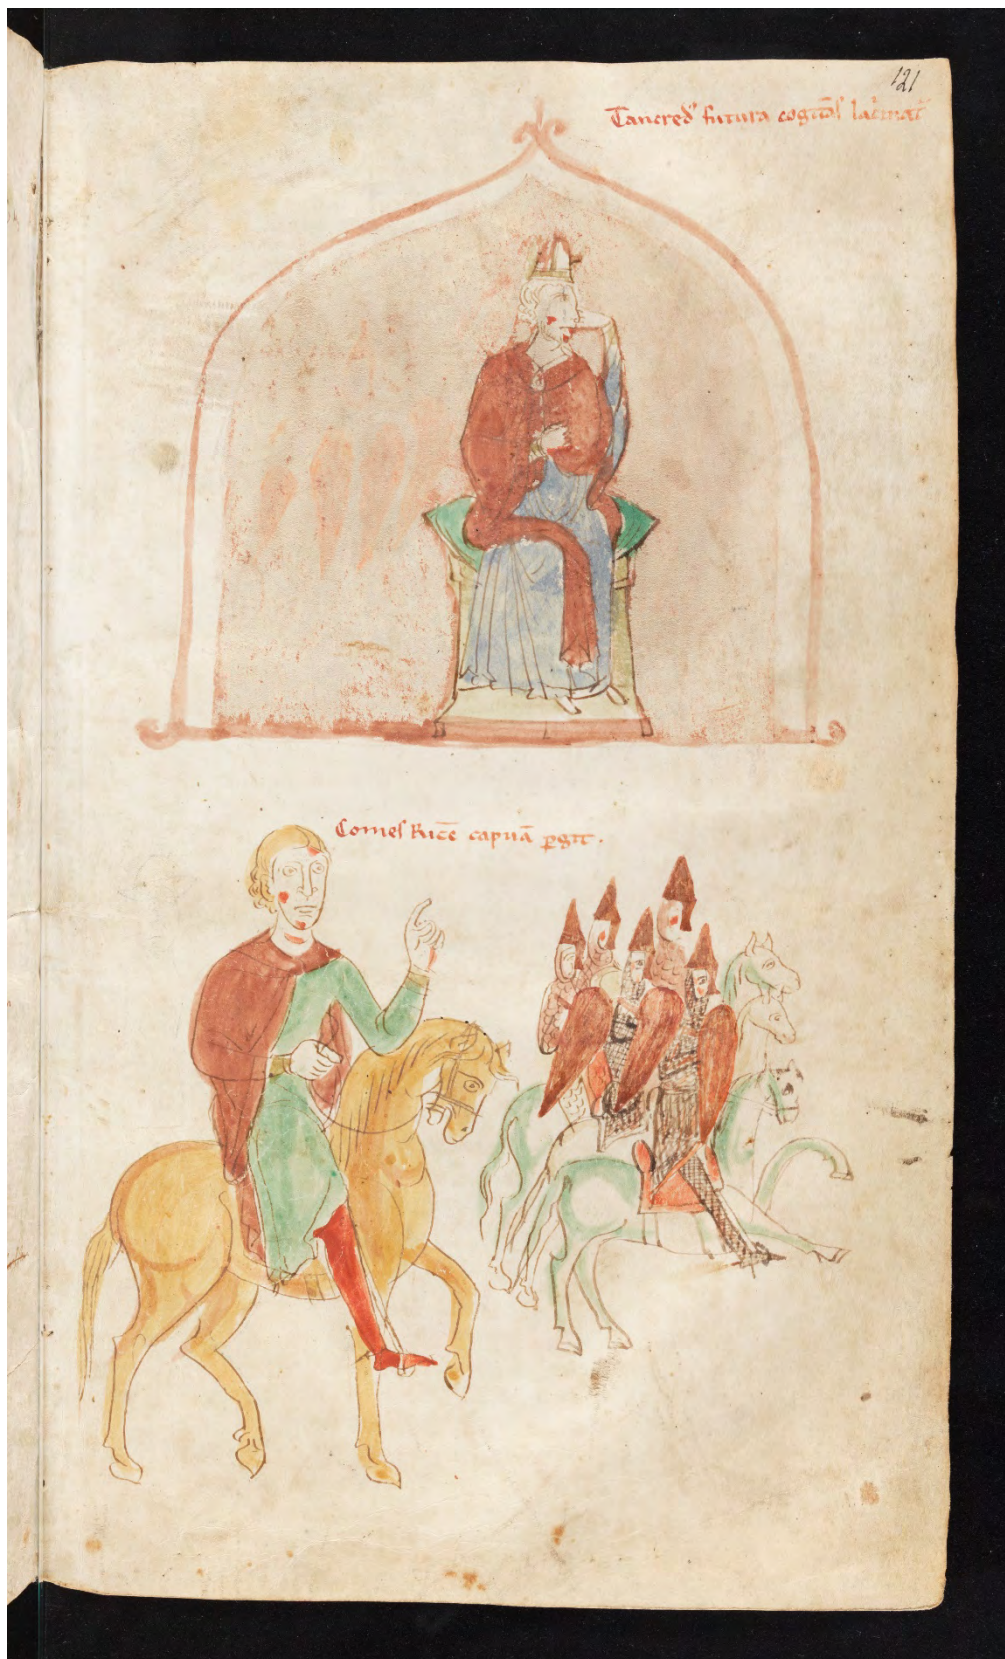 121
Tancred' futura cogitās lac̄mat̄
Comes Ricc̄ capuā ꝑgit .